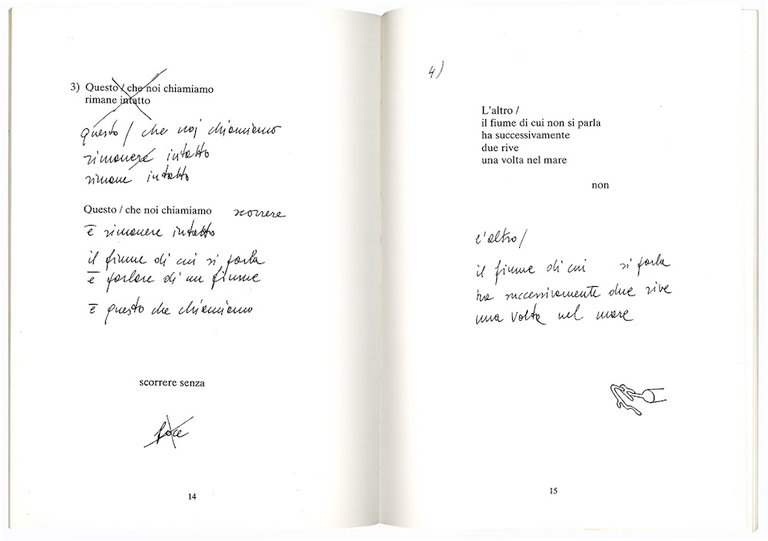 3) Questo / che noi chiamiamo
rimane intatto
questo / che noi chiamiamo
rimanere intatto
rimane intatto
Questo / che noi chiamiamo scorrere
è rimanere intatto
il fiume di cui si parla
è parlare di un fiume
è questo che chiamiamo
scorrere senza
foce
14
4)
L'altro /
il fiume di cui non si parla
ha successivamente
due rive
una volta nel mare
non
l'altro /
il fiume di cui si parla
ha successivamente due rive
una volta nel mare
15